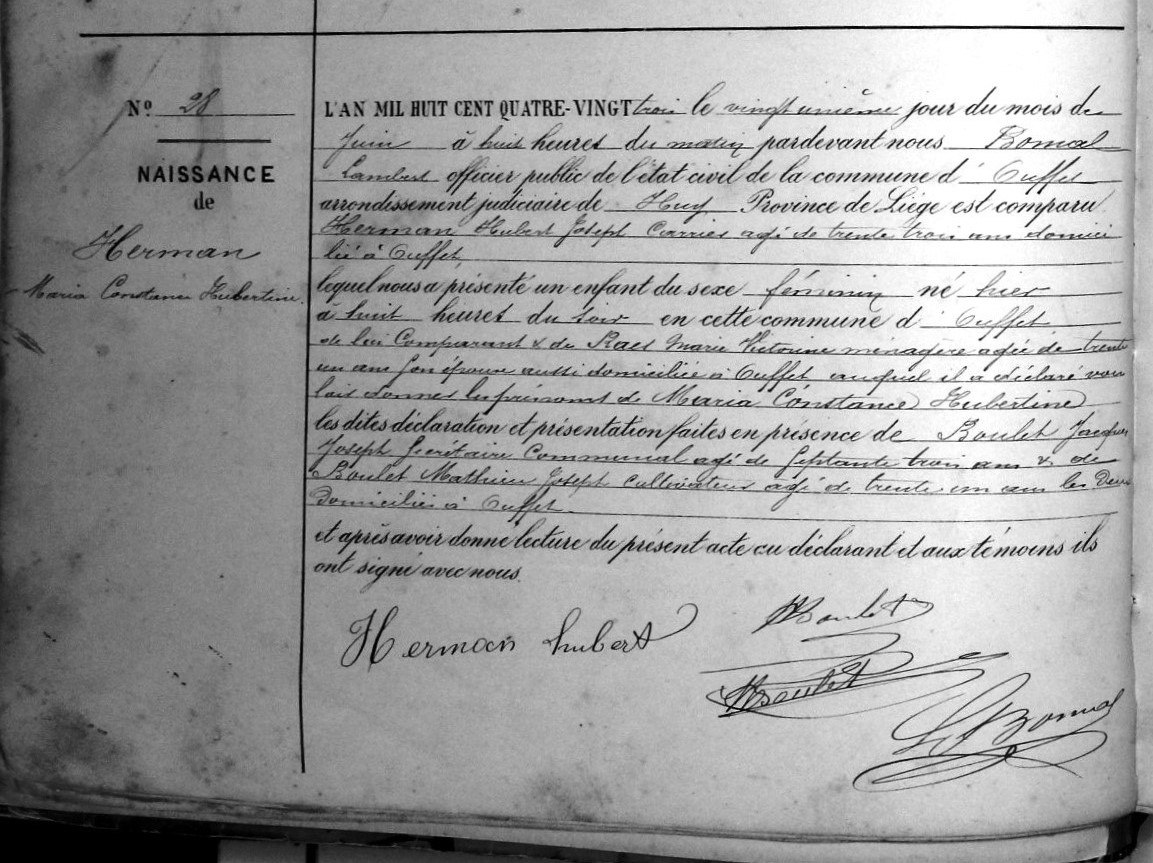 Nº 28
NAISSANCE
de
Herman
Maria Constance Hubertine.
L'AN MIL HUIT CENT QUATRE-VINGT trois le vingt unième jour du mois de
Juin à huit heures du matin pardevant nous Bomal
Lambert officier public de l'état civil de la commune d' Ouffet
arrondissement judiciaire de Huy Province de Liège est comparu
Herman Hubert Joseph Carrier agé de trente trois ans domici
lié à Ouffet,
lequel nous a présenté un enfant du sexe féminin né hier
à huit heures du soir en cette commune d' Ouffet
de lui Comparant & de Raes Marie Victorine ménagère agée de trente
un ans son épouse aussi domiciliée à Ouffet auquel il a déclaré vou
loir donner les prénoms de Maria Constance Hubertine
les dites déclaration et présentation faites en présence de Boulet Jacques
Joseph Secrétaire Communal agé de septante trois ans & de
Boulet Mathieu Joseph cultivateur agé de trente un ans les deux
domiciliés à Ouffet
et après avoir donné lecture du présent acte au déclarant et aux témoins ils
ont signé avec nous.
Herman hubert
Boulet
Boulet
L J Bomal